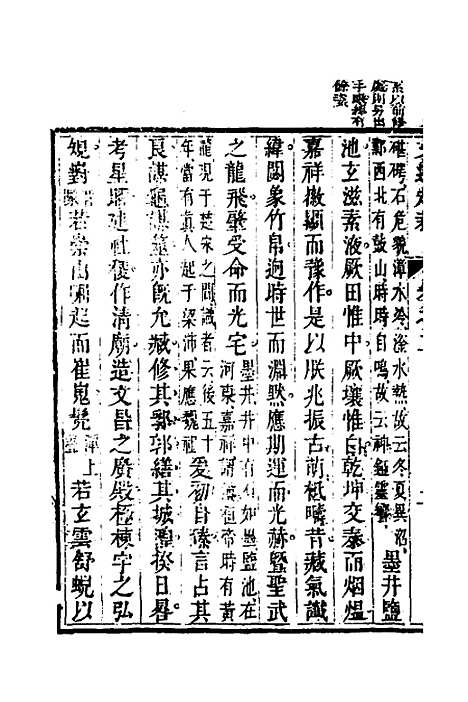 手眼俱有
餘姿
硊硊石危貌漳水冷滏水熱故云冬夏異沼
鄴西北有鼓山時時自鳴故云神鉦靈響
墨井鹽
池玄滋素液厥田惟中厥壤惟白乾坤交泰而烟熅
嘉祥徽顯而豫作是以朕兆振古萌柢疇昔藏氣讖
緯閟象竹帛迥時世而淵默應期運而光赫暨聖武
之龍飛肇受命而光宅
墨井井中有石如墨鹽池在
河東嘉祥謂漢桓帝時有黃
龍現于楚宋之間識者云後五十
年當有真人起于梁沛果應魏祖
爰初自臻言占其
良謀龜謀筮亦既允臧修其郛郭繕其城隍揆日晷
考星耀建社稷作清廟造文昌之廣殿極棟宇之弘
規對若崇山崛起而崔嵬髡
上若玄雲舒蜺以